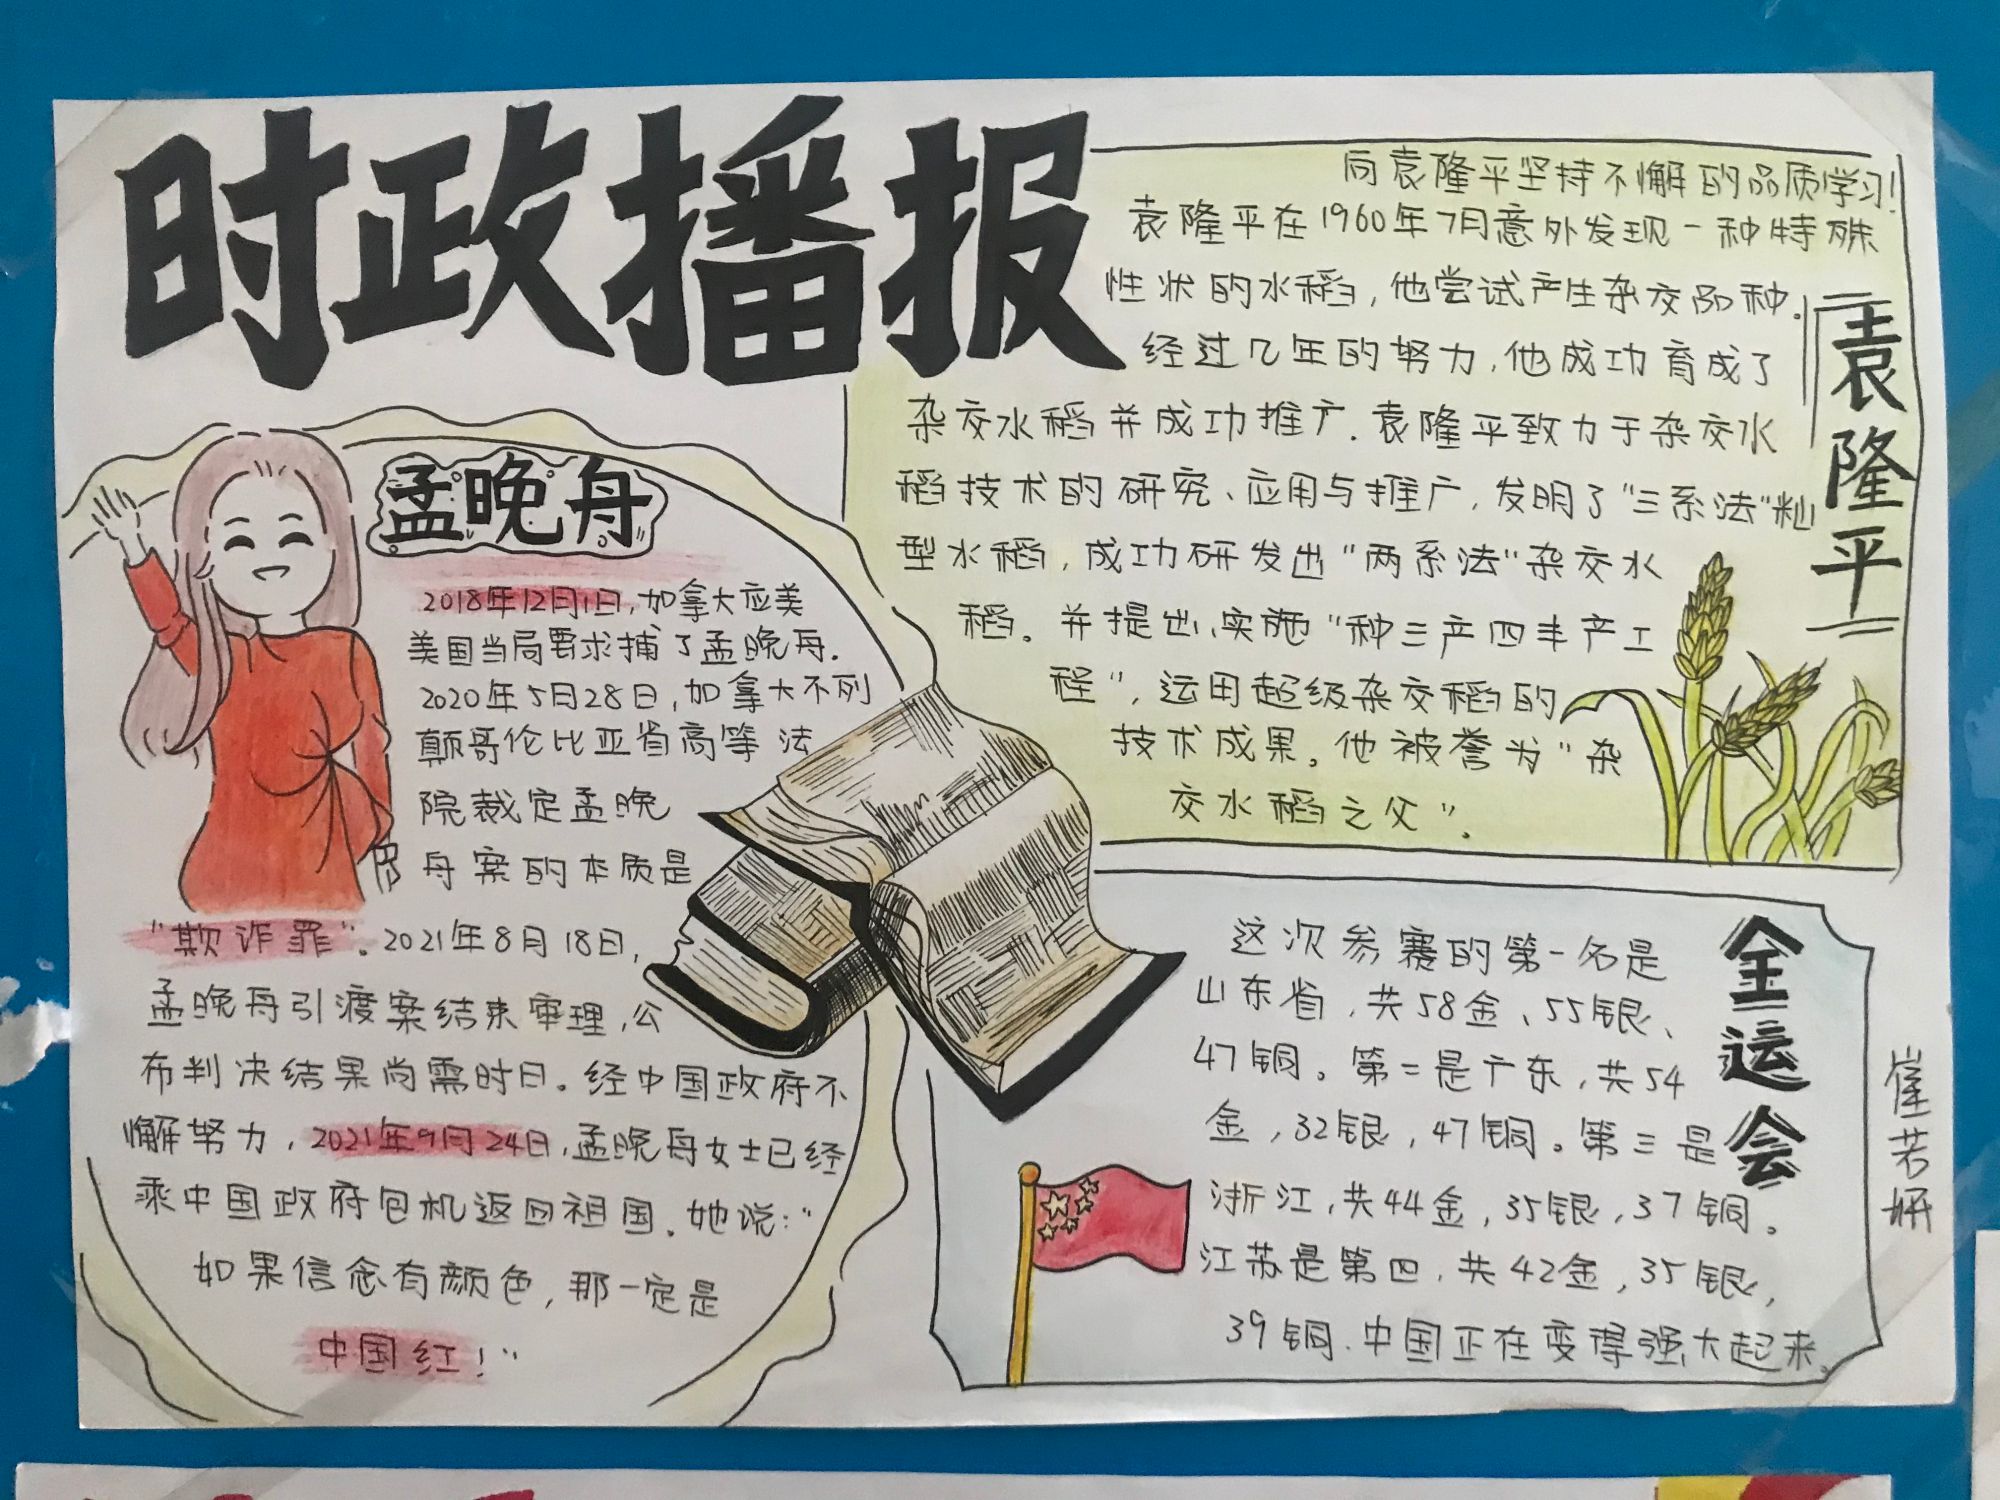 时政播报
孟晚舟
2018年12月1日,加拿大应美
美国当局要求捕了孟晚舟.
2020年5月28日,加拿大不列
颠哥伦比亚省高等法
院裁定孟晚
舟案的本质是
"欺诈罪"。2021年8月18日,
孟晚舟引渡案结束审理,公
布判决结果尚需时日。经中国政府不
懈努力,2021年9月24日,孟晚舟女士已经
乘中国政府包机返回祖国。她说:"
如果信念有颜色,那一定是
中国红!"
向袁隆平坚持不懈的品质学习!
袁隆平在1960年7月意外发现一种特殊
性状的水稻,他尝试产生杂交品种.
经过几年的努力,他成功育成了
杂交水稻并成功推广.袁隆平致力于杂交水
稻技术的研究、应用与推广,发明了"三系法"籼
型水稻,成功研发出"两系法"杂交水
稻。并提出、实施"种三产四丰产工
程",运用超级杂交稻的
技术成果。他被誉为"杂
交水稻之父".
袁隆平
这次参赛的第一名是
山东省,共58金、55银、
47铜。第二是广东,共54
金,32银,47铜。第三是
浙江,共44金,35银,37铜。
江苏是第四,共42金,35银,
39铜.中国正在变得强大起来。
全运会
崔若妍